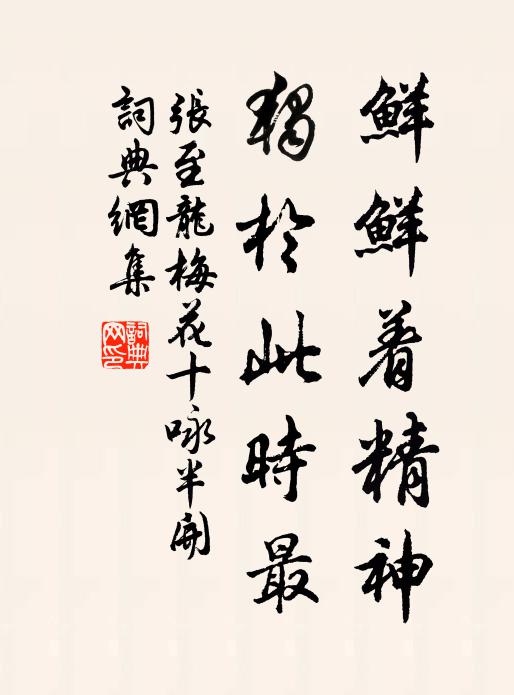 鮮鮮着精神
獨於此時最
張至龍梅花十咏半開
詞典網集
詞典
网印